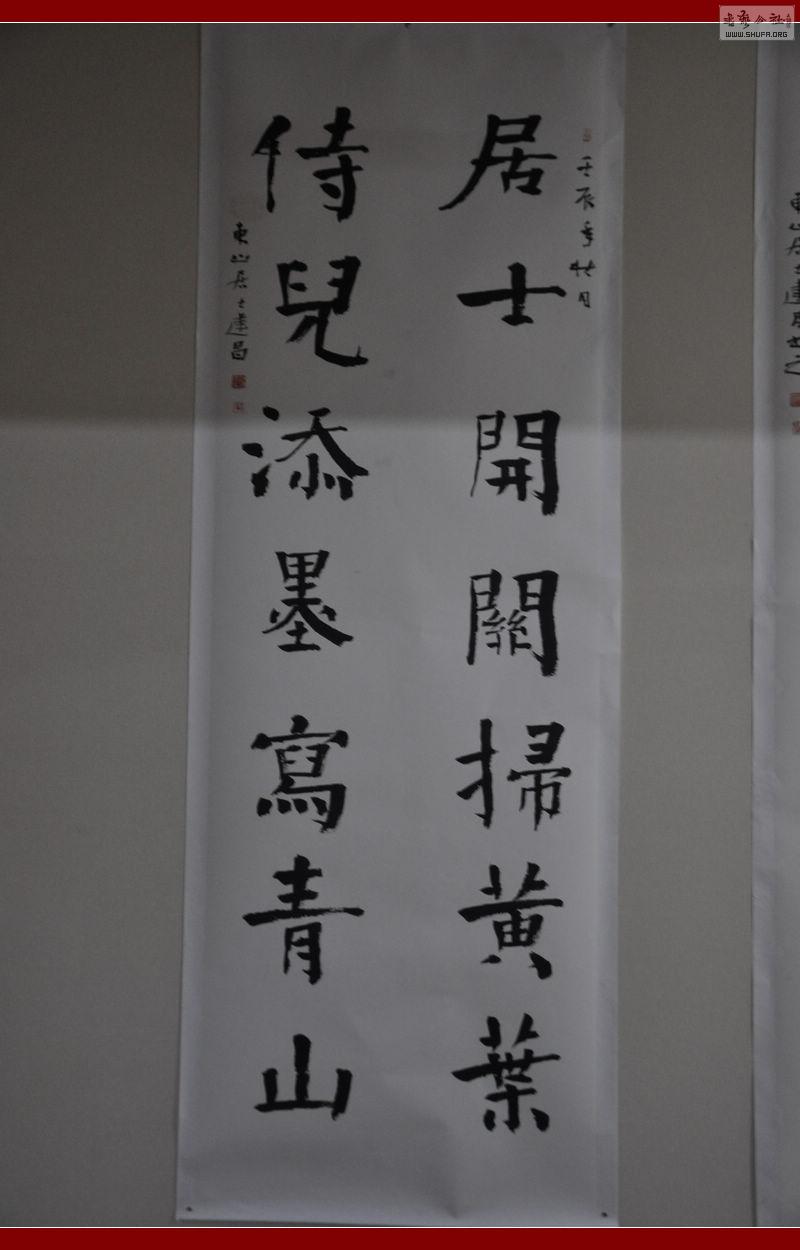 壬辰年
居士開關掃黃葉
侍兒添墨寫青山
東山居士建昌
書藝公社
WWW.SHUFA.ORG